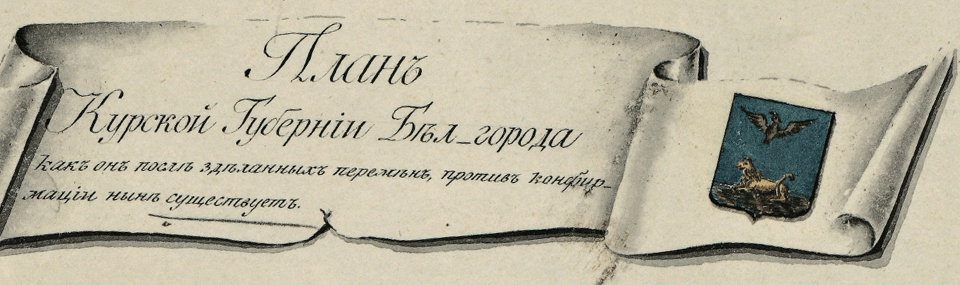 Планъ
Курской Губернiи Бѣл_города
какъ онъ послѣ здѣланныхъ перемѣнъ, противъ конфир_
мацiи нынѣ существуетъ.